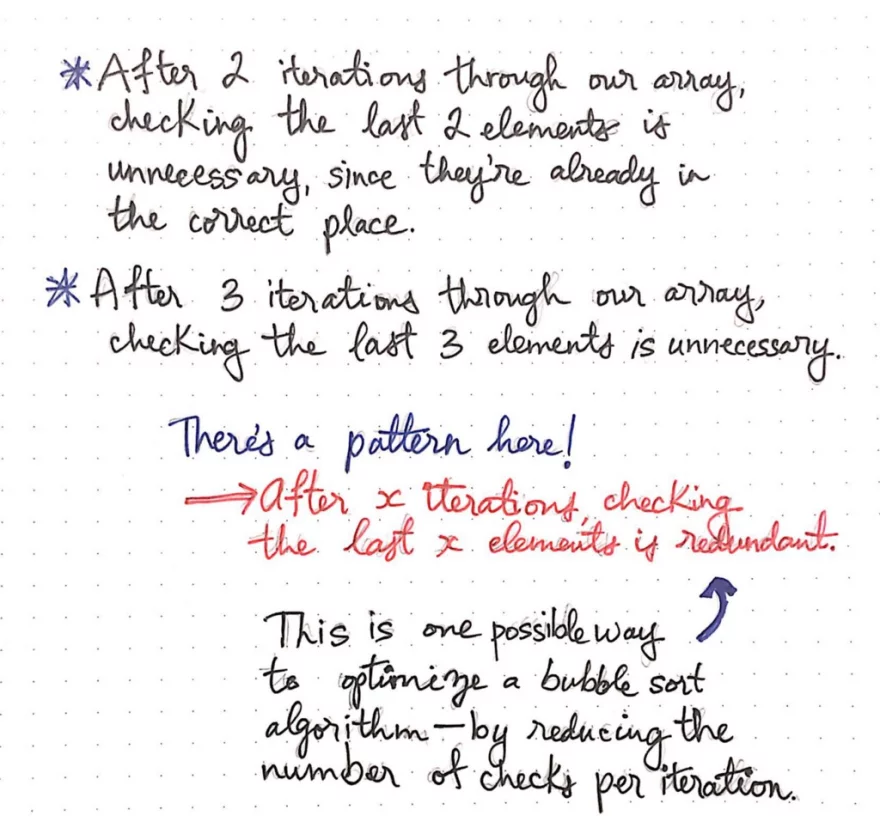 * After 2 iterations through our array,
checking the last 2 elements is
unnecessary, since they're already in
the correct place.
* After 3 iterations through our array,
checking the last 3 elements is unnecessary.
There's a pattern here!
⟶ After x iterations, checking
the last x elements is redundant.
This is one possible way
to optimize a bubble sort
algorithm—by reducing the
number of checks per iteration.